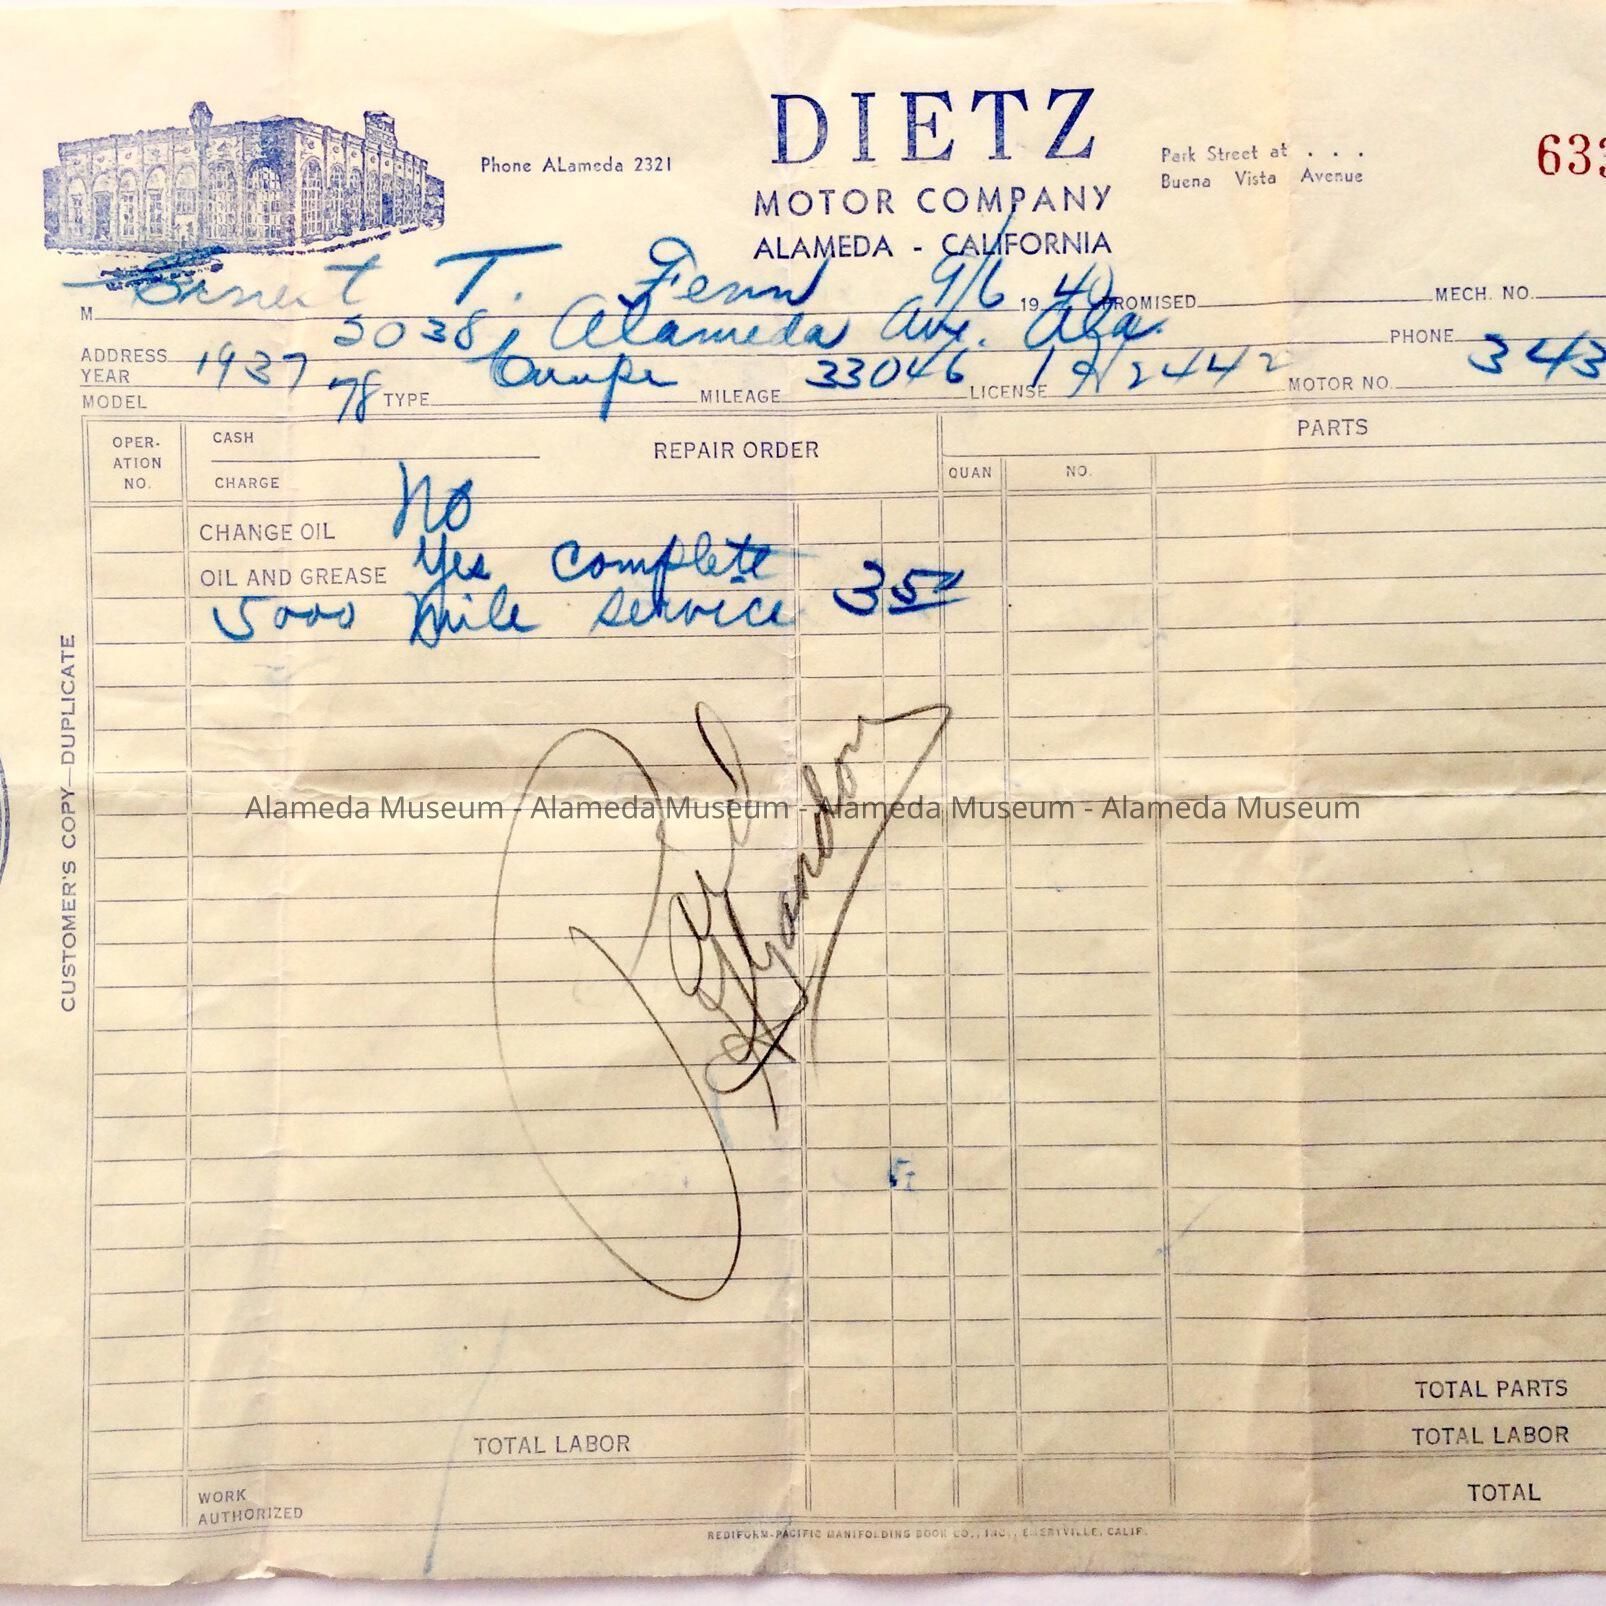 DIETZ
Phone ALameda 2321
Park Street at . . .
Buena Vista Avenue
MOTOR COMPANY
ALAMEDA - CALIFORNIA
M Ernest T. Fenn 9/6 1940 PROMISED MECH. NO.
ADDRESS Alameda Ave. Ala. PHONE
YEAR 1937
MODEL 78 TYPE Coupe MILEAGE 33046 LICENSE MOTOR NO.
OPER-
ATION
NO.
CASH
CHARGE
REPAIR ORDER
PARTS
QUAN
NO.
CHANGE OIL No
OIL AND GREASE Yes Complete
5000 Mile Service
Paid
Alameda Museum - Alameda Museum - Alameda Museum - Alameda Museum
CUSTOMER'S COPY—DUPLICATE
TOTAL PARTS
TOTAL LABOR
TOTAL LABOR
TOTAL
WORK
AUTHORIZED
REDIFORM-PACIFIC MANIFOLDING BOOK CO., INC., EMERYVILLE, CALIF.